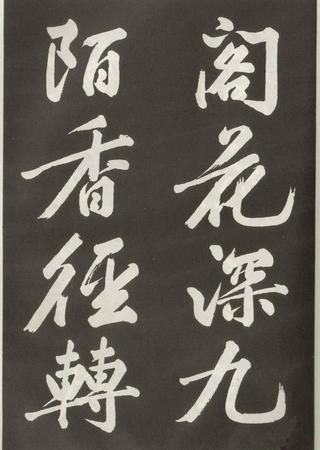 閣花深九
陌香徑轉